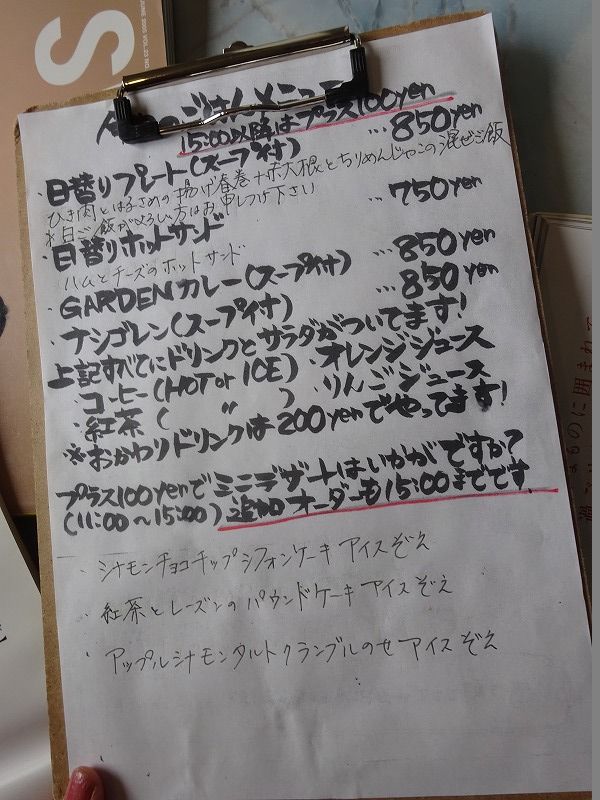 JUNE 2005 VOL.23 NO
S
ごはんメニュー
15:00以降はプラス100yen
・日替りプレート(スープ付) …850yen
ひき肉とはるさめの揚げ春巻+赤大根とちりめんじゃこの混ぜご飯
※白ご飯がよろしい方はお申しつけ下さい
・日替りホットサンド …750yen
ハムとチーズのホットサンド
・GARDENカレー(スープ付) …850yen
・ナシゴレン(スープ付) …850yen
上記すべてにドリンクとサラダがついてます!
・コーヒー(HOT or ICE) オレンジジュース
・紅茶 ( 〃 ) りんごジュース
※おかわりドリンクは200yenでやってます!
プラス100yenでミニデザートはいかがですか?
(11:00〜15:00)追加オーダーも15:00までです
・シナモンチョコチップシフォンケーキ アイスぞえ
・紅茶とレーズンのパウンドケーキ アイスぞえ
・アップルシナモンタルトクランブルのせ アイスぞえ
ものに囲まれて